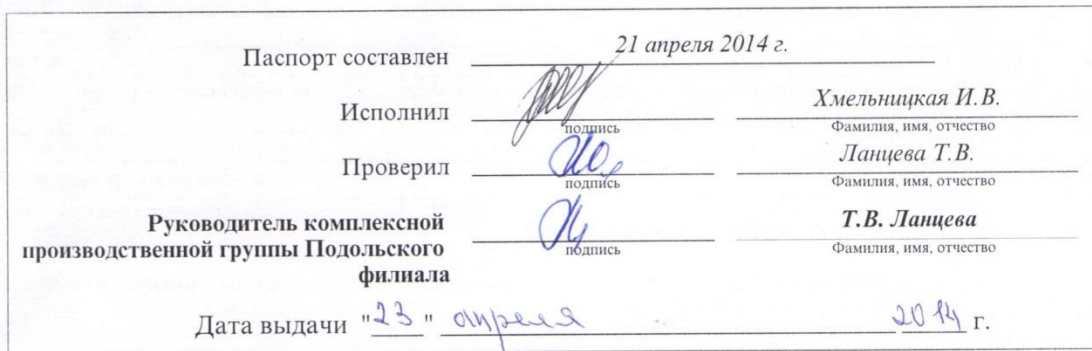 Паспорт составлен 21 апреля 2014 г.
Исполнил Хмельницкая И.В.
подпись Фамилия, имя, отчество
Проверил Ланцева Т.В.
подпись Фамилия, имя, отчество
Руководитель комплексной
производственной группы Подольского
филиала
Т.В. Ланцева
подпись Фамилия, имя, отчество
Дата выдачи "23" апреля 2014 г.